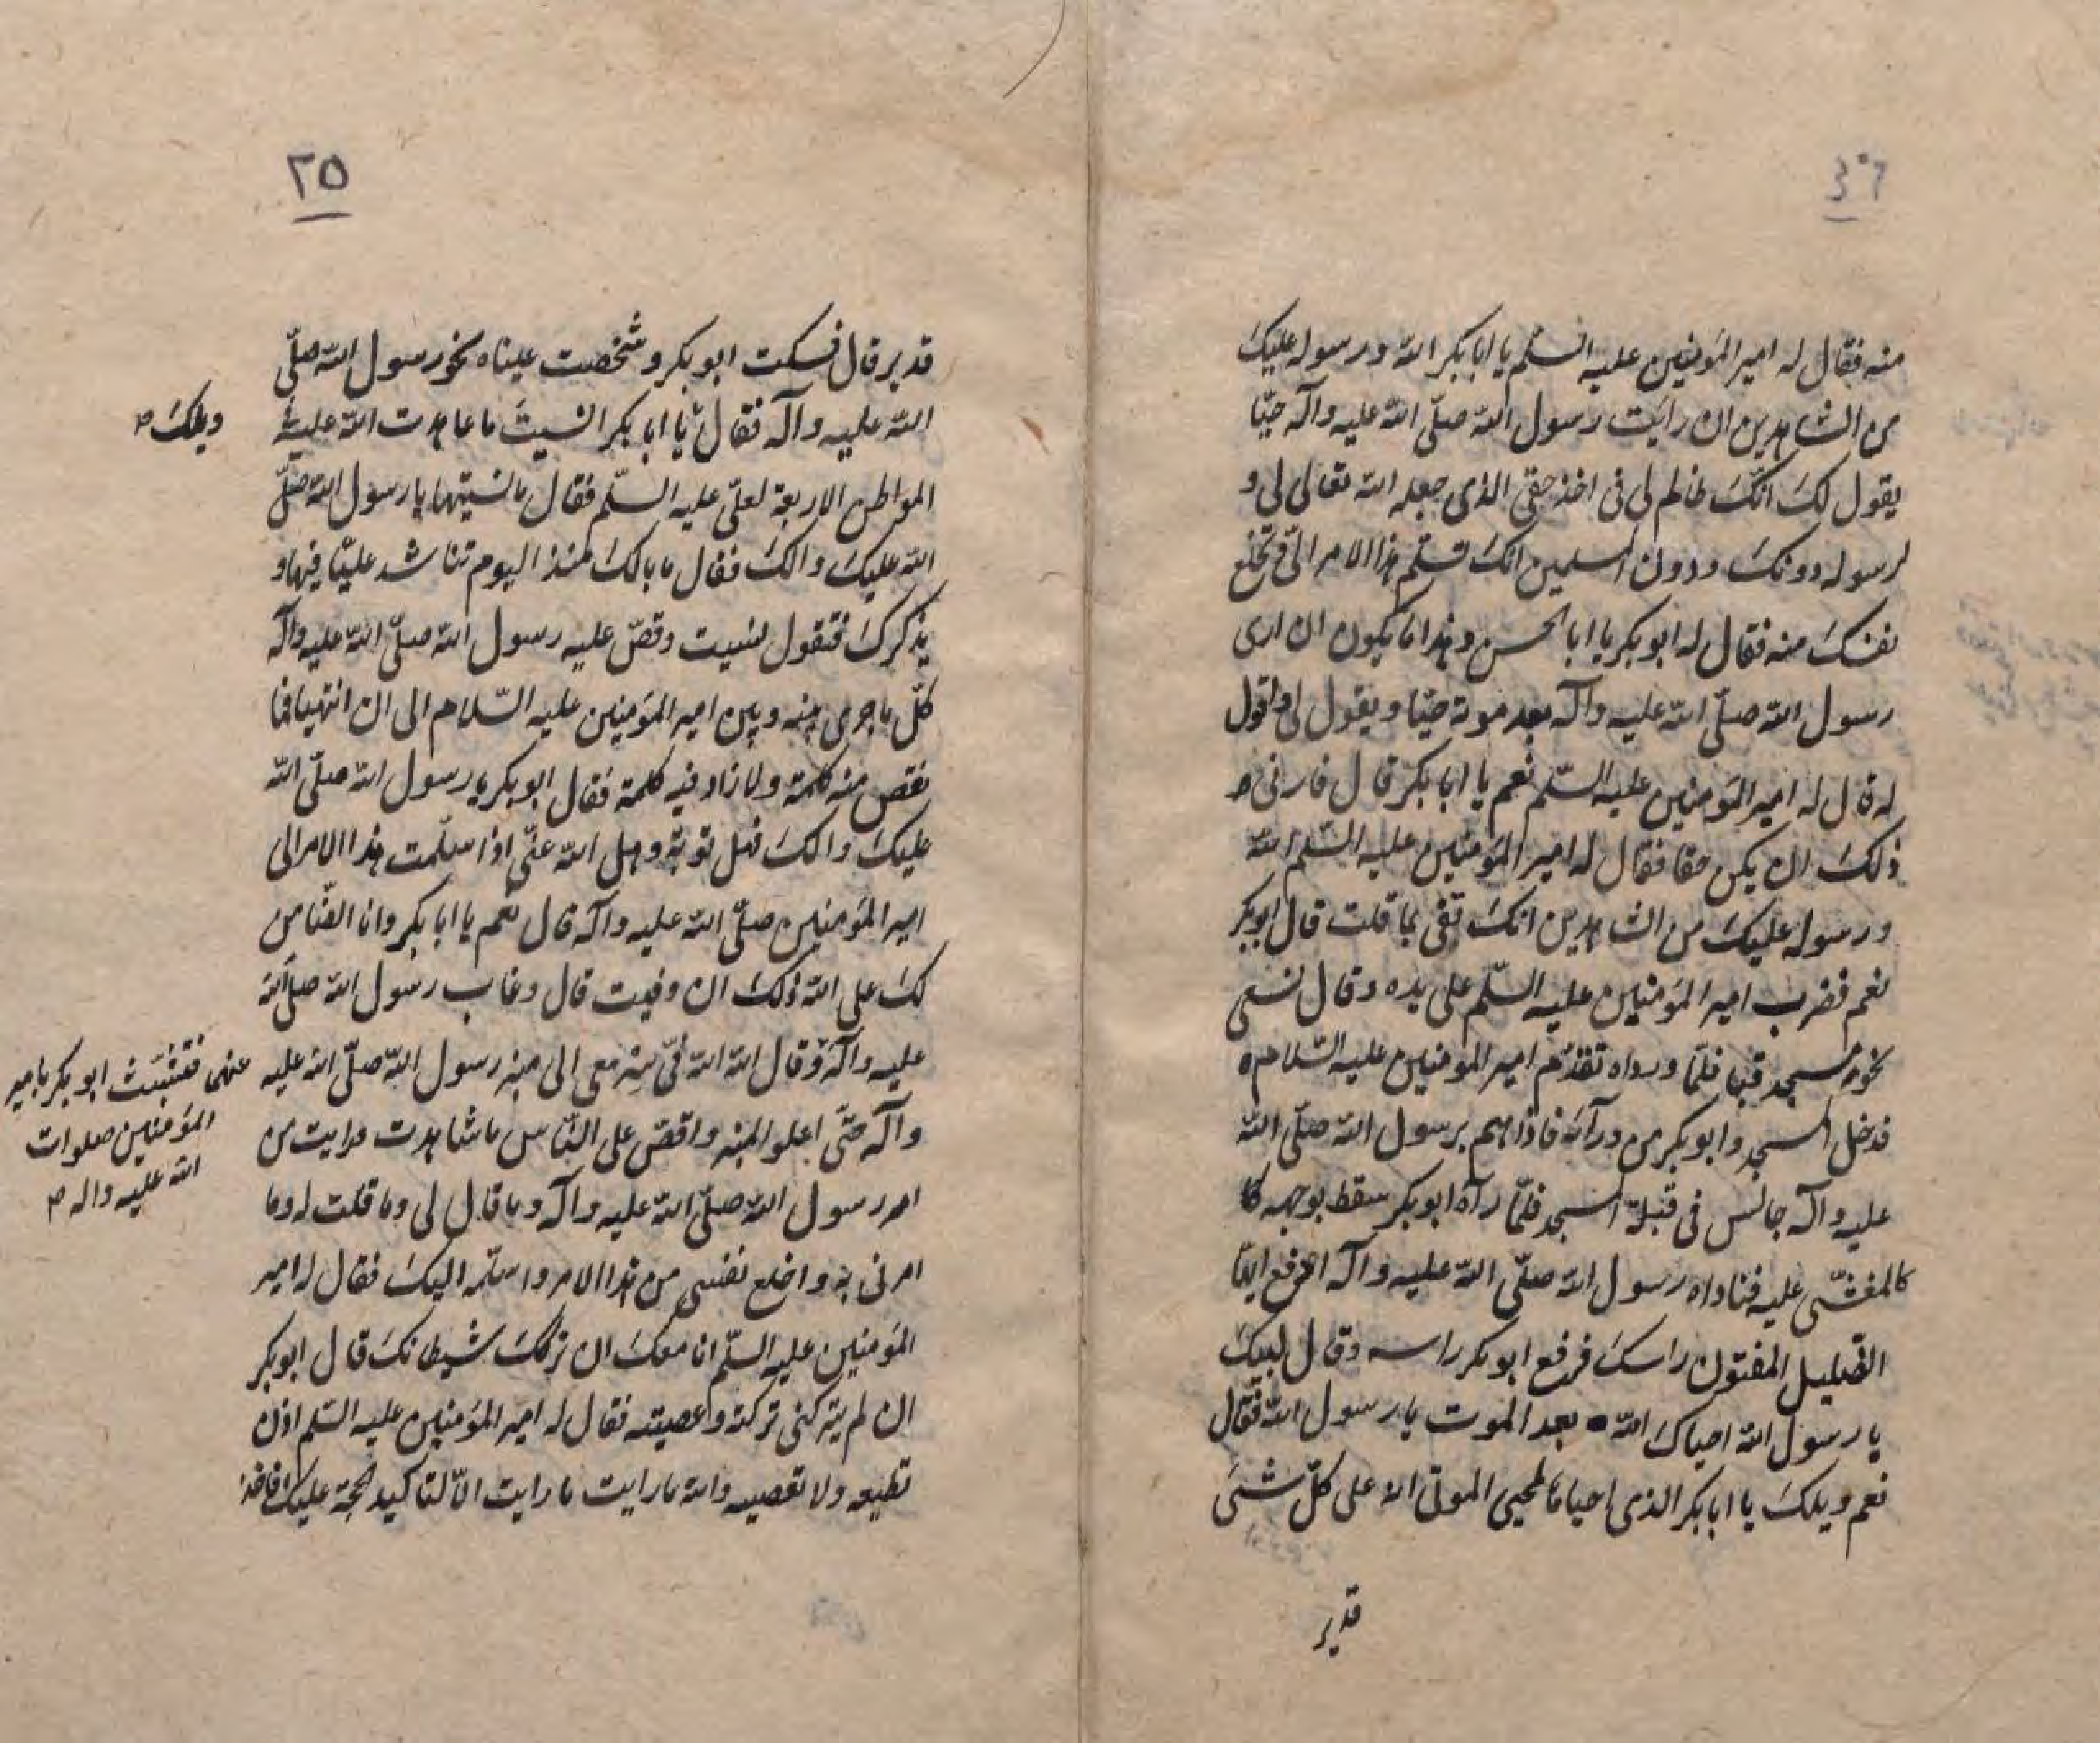 منه فقال له امير المؤمنين عليه السلم يا ابا بكر الله ورسوله عليك
من الشاهدين ان رايت رسول الله صلّى الله عليه وآله حيّا
يقول لك انّك ظالم لى فى اخذ حقى الذى جعله الله تعالى لى و
لرسوله دونك ودون المسلمين انك تسلم هذا الامر الىّ وتخلع
نفسك منه فقال له ابو بكر يا ابا الحسن وهذا ما يكون ان ارى
رسول الله صلّى الله عليه وآله بعد موته حيّا ويقول لى واقول
له قال له امير المؤمنين عليه السّلم نعم يا ابا بكر قال فارنى
ذلك ان يكن حقا فقال له امير المؤمنين عليه السّلم الله
ورسوله عليك من الشاهدين انك تفى بما قلت قال ابو بكر
نعم فضرب امير المؤمنين عليه السّلم على يده وقال تسعى
نحو مسجد قبا فلمّا ورداه تقدّم امير المومنين عليه السّلام
فدخل المسجد وابو بكر من ورآئه فاذا هم برسول الله صلّى الله
عليه وآله جالس فى قبلة المسجد فلمّا رآه ابو بكر سقط بوجهه كا
كالمغشّى عليه فناداه رسول الله صلّى الله عليه وآله ارفع ايّها
الضليل المفتون راسك فرفع ابو بكر راسه وقال لبيك
يا رسول الله احياك الله بعد الموت يا رسول الله فقال
نعم ويلك يا ابا بكر الذى احياها لمحيى الموتى انه على كلّ شئى
قدير
٢٥
قدير قال فسكت ابو بكر وشخصت عيناه نحو رسول الله صلّى
الله عليه وآله فقال يا ابا بكر انسيت ما عاهدت الله عليه
ويلك
المواطن الاربعة لعلىّ عليه السلّم فقال ما نسيتها يا رسول الله صلّى
الله عليك والك فقال ما بالك منذ اليوم تناشد عليّا فيها و
يذكرك فتقول نسيت وقصّ عليه رسول الله صلّى الله عليه وآله
كلّ ما جرى بينه وبين امير المؤمنين عليه السّلام الى ان انتهيا فما
نقص منه كلمة ولا زاد فيه كلمة فقال ابو بكر يا رسول الله صلّى الله
عليك والك فهل توبة وهل الله عنّى اذا سلّمت هذا الامر الى
امير المؤمنين صلّى الله عليه وآله قال نعم يا ابا بكر وانا الضّامن
لك على الله ذلك ان وفيت قال وغاب رسول الله صلى الله
عليه وآله وقال الله الله فىّ سر معى الى منبر رسول الله صلّى الله عليه
عنهما فتشبث ابو بكر بامير
المؤمنين صلوات
الله عليه واله
وآله حتّى اعلو المنبر واقصّ على النّاس ما شاهدت ورايت من
امر رسول الله صلّى الله عليه وآله وما قال لى وما قلت له وما
امرنى به واخلع نفسى من هذا الامر واسلّمه اليك فقال له امير
المؤمنين عليه السلّم انا معك ان تركك شيطانك قال ابو بكر
ان لم يتركنى تركته وعصيته فقال له امير المؤمنين عليه السّلم اذن
تطيعه ولا تعصيه وانما رايت ما رايت الّا لتاكيد الحجة عليك فاخذ